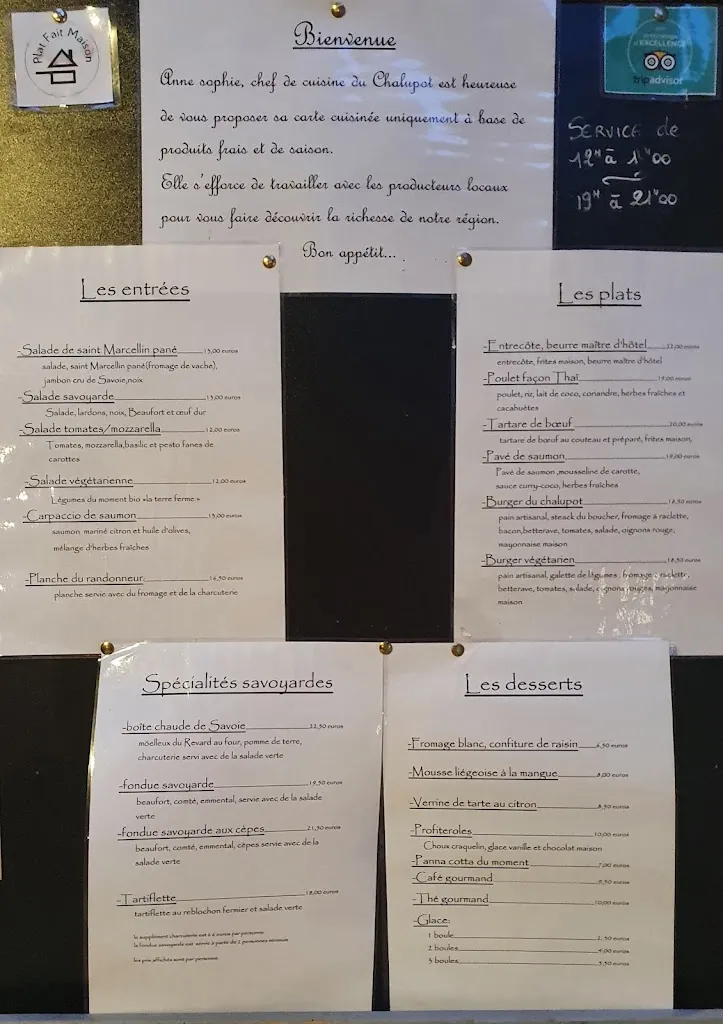 Plat Fait Maison
Bienvenue
Anne sophie, chef de cuisine du Chalupot est heureuse
de vous proposer sa carte cuisinée uniquement à base de
produits frais et de saison.
Elle s'efforce de travailler avec les producteurs locaux
pour vous faire découvrir la richesse de notre région.
Bon appétit...
D'EXCELLENCE
tripadvisor
SERVICE de
à
19H à 21H00
Les entrées
-Salade de saint Marcellin pané 15,00 euros
salade, saint Marcellin pané(fromage de vache),
jambon cru de Savoie,noix
-Salade savoyarde 15,00 euros
Salade, lardons, noix, Beaufort et œuf dur
-Salade tomates/mozzarella 12,00 euros
Tomates, mozzarella,basilic et pesto fanes de
carottes
-Salade végétarienne 12,00 euros
Légumes du moment bio «la terre ferme»
-Carpaccio de saumon 15,00 euros
saumon mariné citron et huile d'olives,
mélange d'herbes fraîches
-Planche du randonneur 16,50 euros
planche servie avec du fromage et de la charcuterie
Les plats
-Entrecôte, beurre maître d'hôtel 22,00 euros
entrecôte, frites maison, beurre maître d'hôtel
-Poulet façon Thaï 19,00 euros
poulet, riz, lait de coco, coriandre, herbes fraîches et
cacahuètes
-Tartare de bœuf 20,00 euros
tartare de bœuf au couteau et préparé, frites maison,
-Pavé de saumon 19,00 euros
Pavé de saumon ,mousseline de carotte,
sauce curry-coco, herbes fraîches
-Burger du chalupot 18,50 euros
pain artisanal, steack du boucher, fromage à raclette,
bacon,betterave, tomates, salade, oignons rouge,
mayonnaise maison
-Burger végétarien 18,50 euros
pain artisanal, galette de légumes, fromage à raclette,
betterave, tomates, salade, oignons rouges, mayonnaise
maison
Spécialités savoyardes
-boîte chaude de Savoie 22,50 euros
möelleux du Revard au four, pomme de terre,
charcuterie servi avec de la salade verte
-fondue savoyarde 19,50 euros
beaufort, comté, emmental, servie avec de la salade
verte
-fondue savoyarde aux cèpes 21,50 euros
beaufort, comté, emmental, cèpes servie avec de la
salade verte
-Tartiflette 18,00 euros
tartiflette au reblochon fermier et salade verte
le supplément charcuterie est à 6 euros par personne
la fondue savoyarde est servie à partir de 2 personnes minimum
les prix affichés sont par personne
Les desserts
-Fromage blanc, confiture de raisin 6,50 euros
-Mousse liégeoise à la mangue 8,00 euros
-Verrine de tarte au citron 8,50 euros
-Profiteroles 10,00 euros
Choux craquelin, glace vanille et chocolat maison
-Panna cotta du moment 7,00 euros
-Café gourmand 9,50 euros
-Thé gourmand 10,00 euros
-Glace:
1 boule 2,50 euros
2 boules 4,00 euros
3 boules 5,50 euros